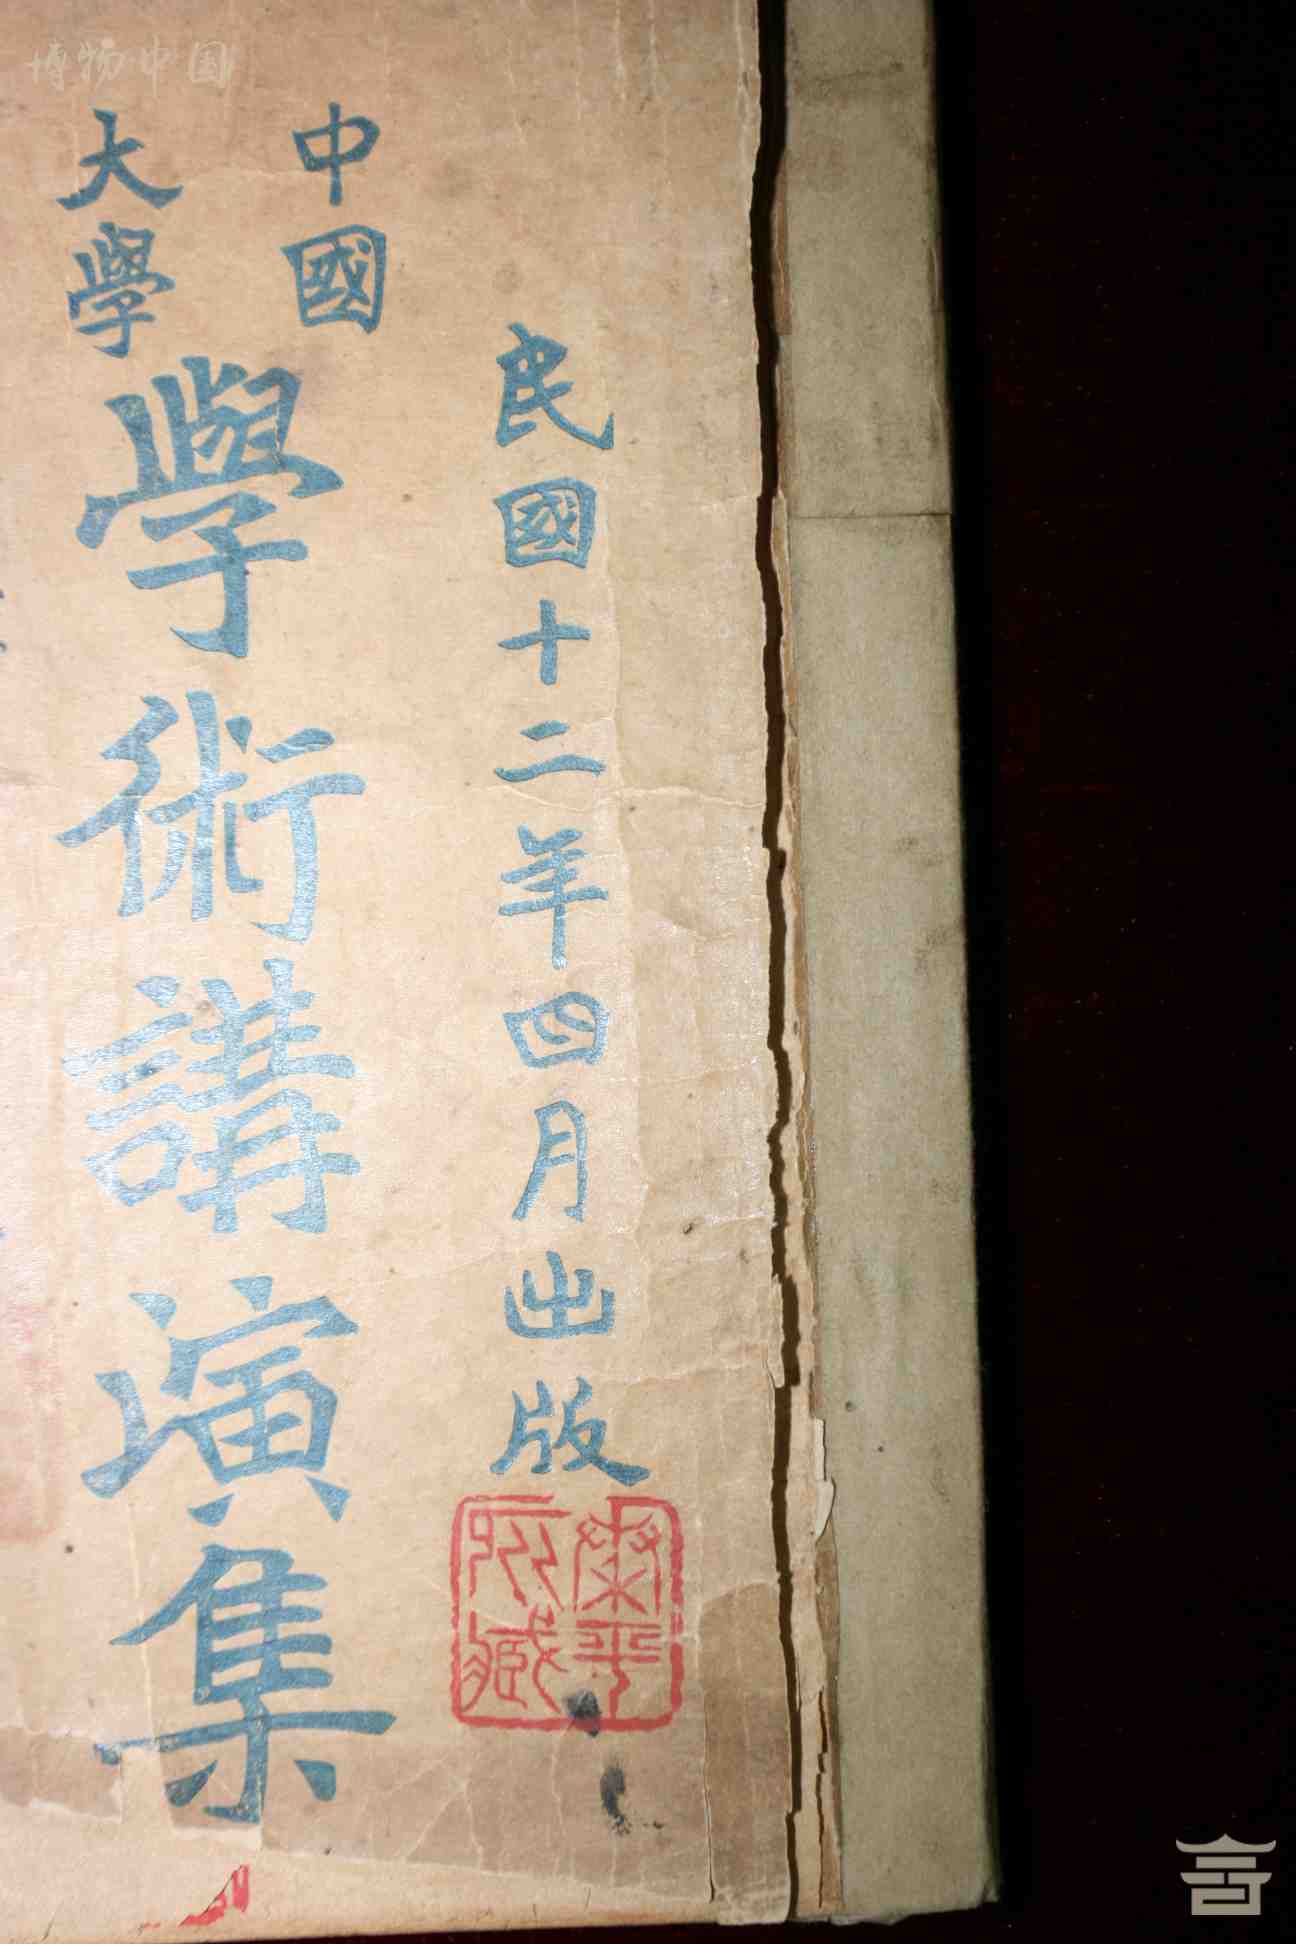 博物中国
民國十二年四月出版
中國
大學
學術講演集